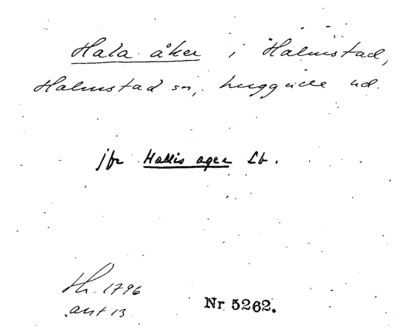 Hala åker i Halmstad,
Halmstad sn, Luggude hd.
jfr Hallis ager Lb.
Hh. 1796
akt 13
Nr 5262.